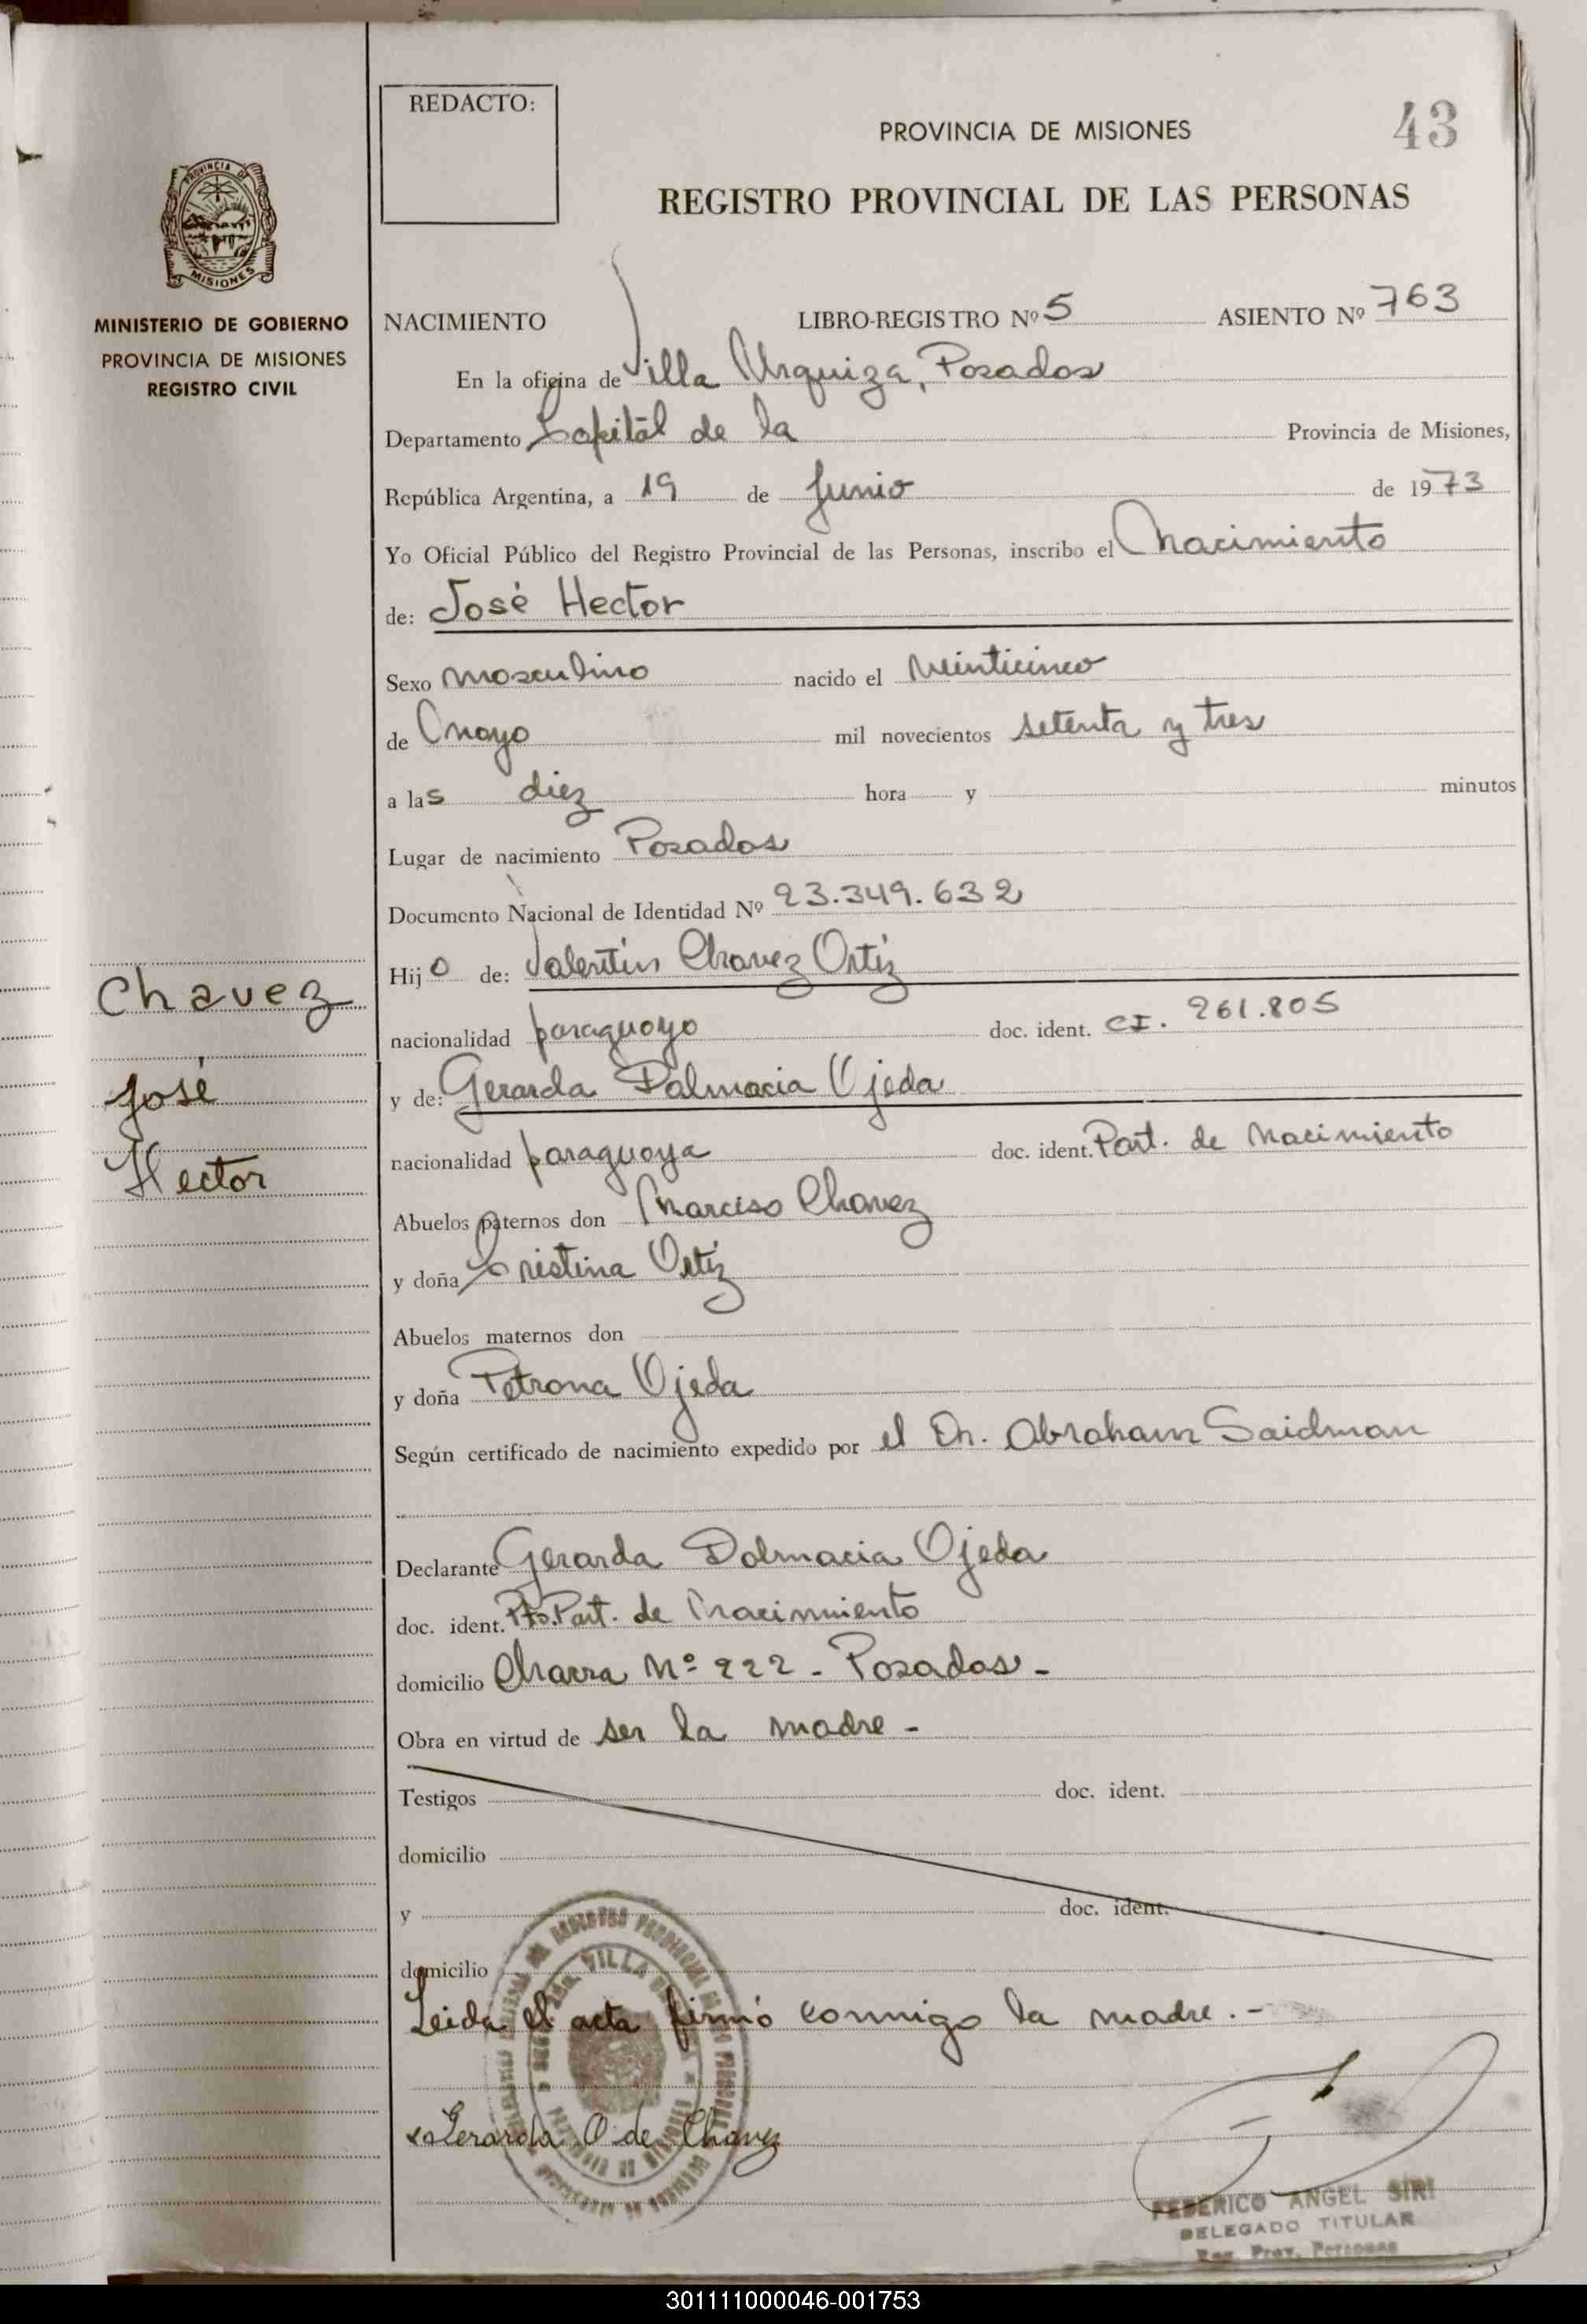 REDACTO:
PROVINCIA DE MISIONES
43
REGISTRO PROVINCIAL DE LAS PERSONAS
PROVINCIA DE
MISIONES
MINISTERIO DE GOBIERNO
PROVINCIA DE MISIONES
REGISTRO CIVIL
NACIMIENTO LIBRO-REGISTRO Nº 5 ASIENTO Nº 763
En la oficina de Villa Urquiza, Posadas
Departamento Capital de la Provincia de Misiones,
República Argentina, a 19 de Junio de 1973
Yo Oficial Público del Registro Provincial de las Personas, inscribo el Nacimiento
de: José Hector
Sexo masculino nacido el veinticinco
de Mayo mil novecientos setenta y tres
a las diez hora y minutos
Lugar de nacimiento Posadas
Documento Nacional de Identidad Nº 23.349.632
Hijo de: Valentín Chavez Ortiz
Chavez
nacionalidad paraguayo doc. ident. CI. 261.805
José
y de: Gerarda Dalmacia Ojeda
Hector
nacionalidad paraguaya doc. ident. Part. de Nacimiento
Abuelos paternos don Narciso Chavez
y doña Cristina Ortiz
Abuelos maternos don
y doña Petrona Ojeda
Según certificado de nacimiento expedido por el Dr. Abraham Saidman
Declarante Gerarda Dalmacia Ojeda
doc. ident. Pto. Part. de Nacimiento
domicilio Chacra Nº 222 - Posadas -
Obra en virtud de ser la madre -
Testigos doc. ident.
domicilio
y doc. ident.
domicilio
Leida el acta firmó conmigo la madre. -
Gerarda O de Chavez
FEDERICO ANGEL SIRI
DELEGADO TITULAR
Reg. Prov. Personas
301111000046-001753